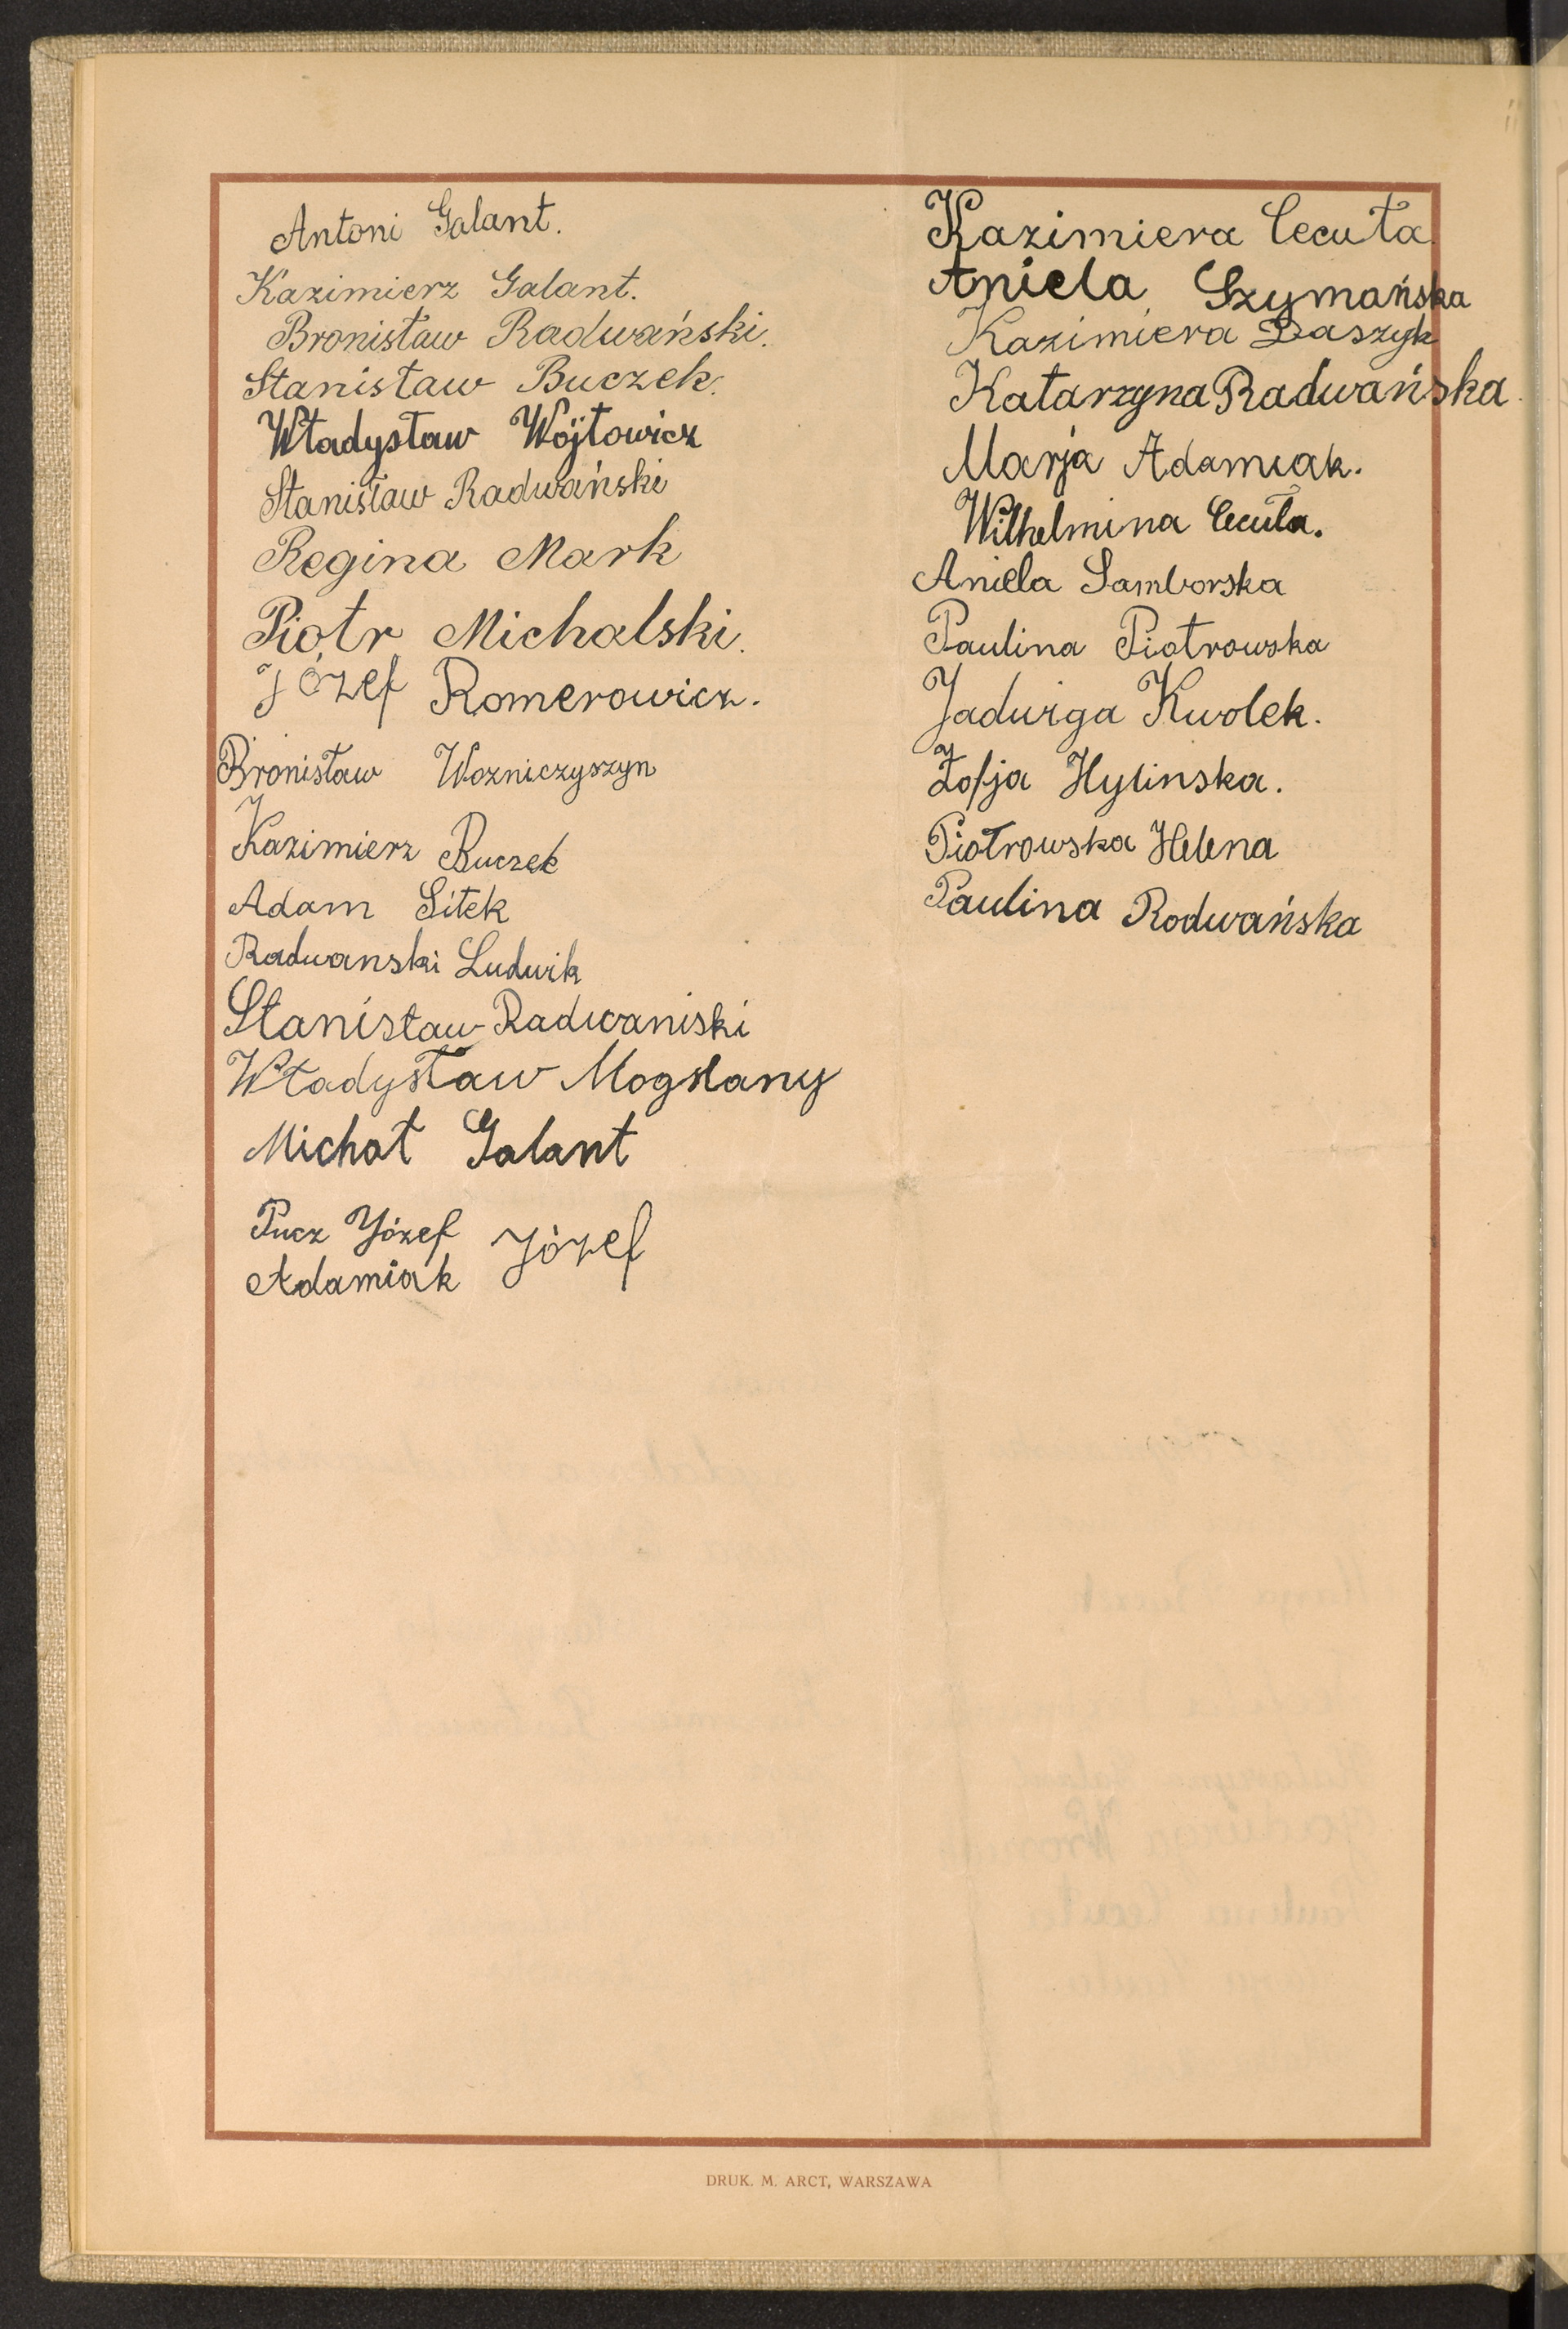 Antoni Galant.
Kazimierz Galant.
Bronisław Radwański.
Stanisław Buczek.
Władysław Wójtowicz
Stanisław Radwański
Regina Mark
Piotr Michalski.
Józef Romerowicz.
Bronisław Wozniczyszyn
Kazimierz Buczek
Adam Sitek
Radwanski Ludwik
Stanisław Radwaniski
Władysław Mogslany
Michał Galant
Pucz Józef
Adamiak Józef
Kazimiera Cecuła
Aniela Szymańska
Kazimiera Daszyk
Katarzyna Radwańska
Marja Adamiak.
Wilhelmina Cecuła.
Aniela Samborska
Paulina Piotrowska
Jadwiga Kwolek.
Zofja Hylinska.
Piotrowska Helena
Paulina Rodwańska
DRUK. M. ARCT, WARSZAWA